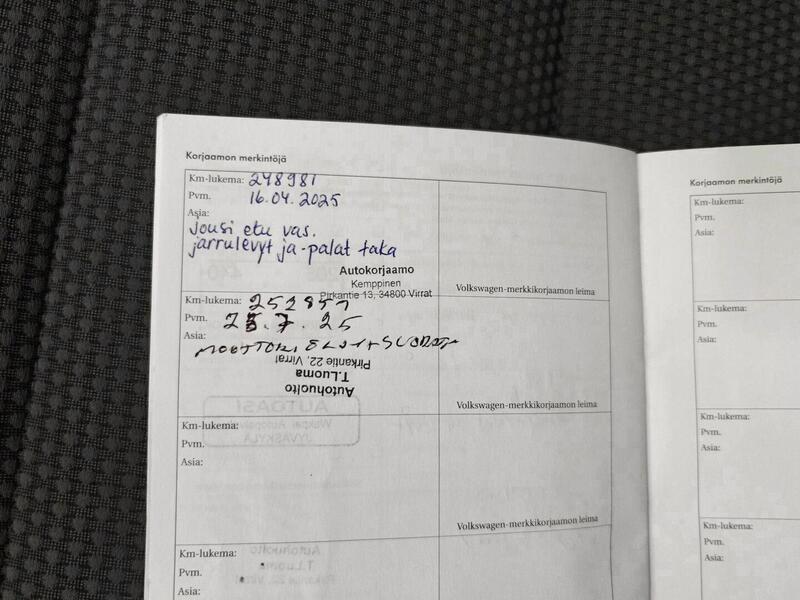 Korjaamon merkintöjä
Km-lukema: 248981
Pvm. 16.04.2025
Asia:
Jousi etu vas.
jarrulevyt ja -palat taka
Autokorjaamo
Kemppinen
Pirkantie 13, 34800 Virrat
Volkswagen-merkkikorjaamon leima
Km-lukema: 252857
Pvm. 25.7.25
Asia:
MOOTTORI
Autohuolto
T.Luoma
Pirkantie 22, Virrat
Volkswagen-merkkikorjaamon leima
Km-lukema:
Pvm.
Asia:
AUTOASI
JYVÄSKYLÄ
Volkswagen-merkkikorjaamon leima
Km-lukema:
Pvm.
Asia:
Autohuolto
T.Luoma
Pirkantie 22, Virrat
Korjaamon merkintöjä
Km-lukema:
Pvm.
Asia:
Km-lukema:
Pvm.
Asia:
Km-lukema:
Pvm.
Asia:
Km-lukema:
Pvm.
Asia: